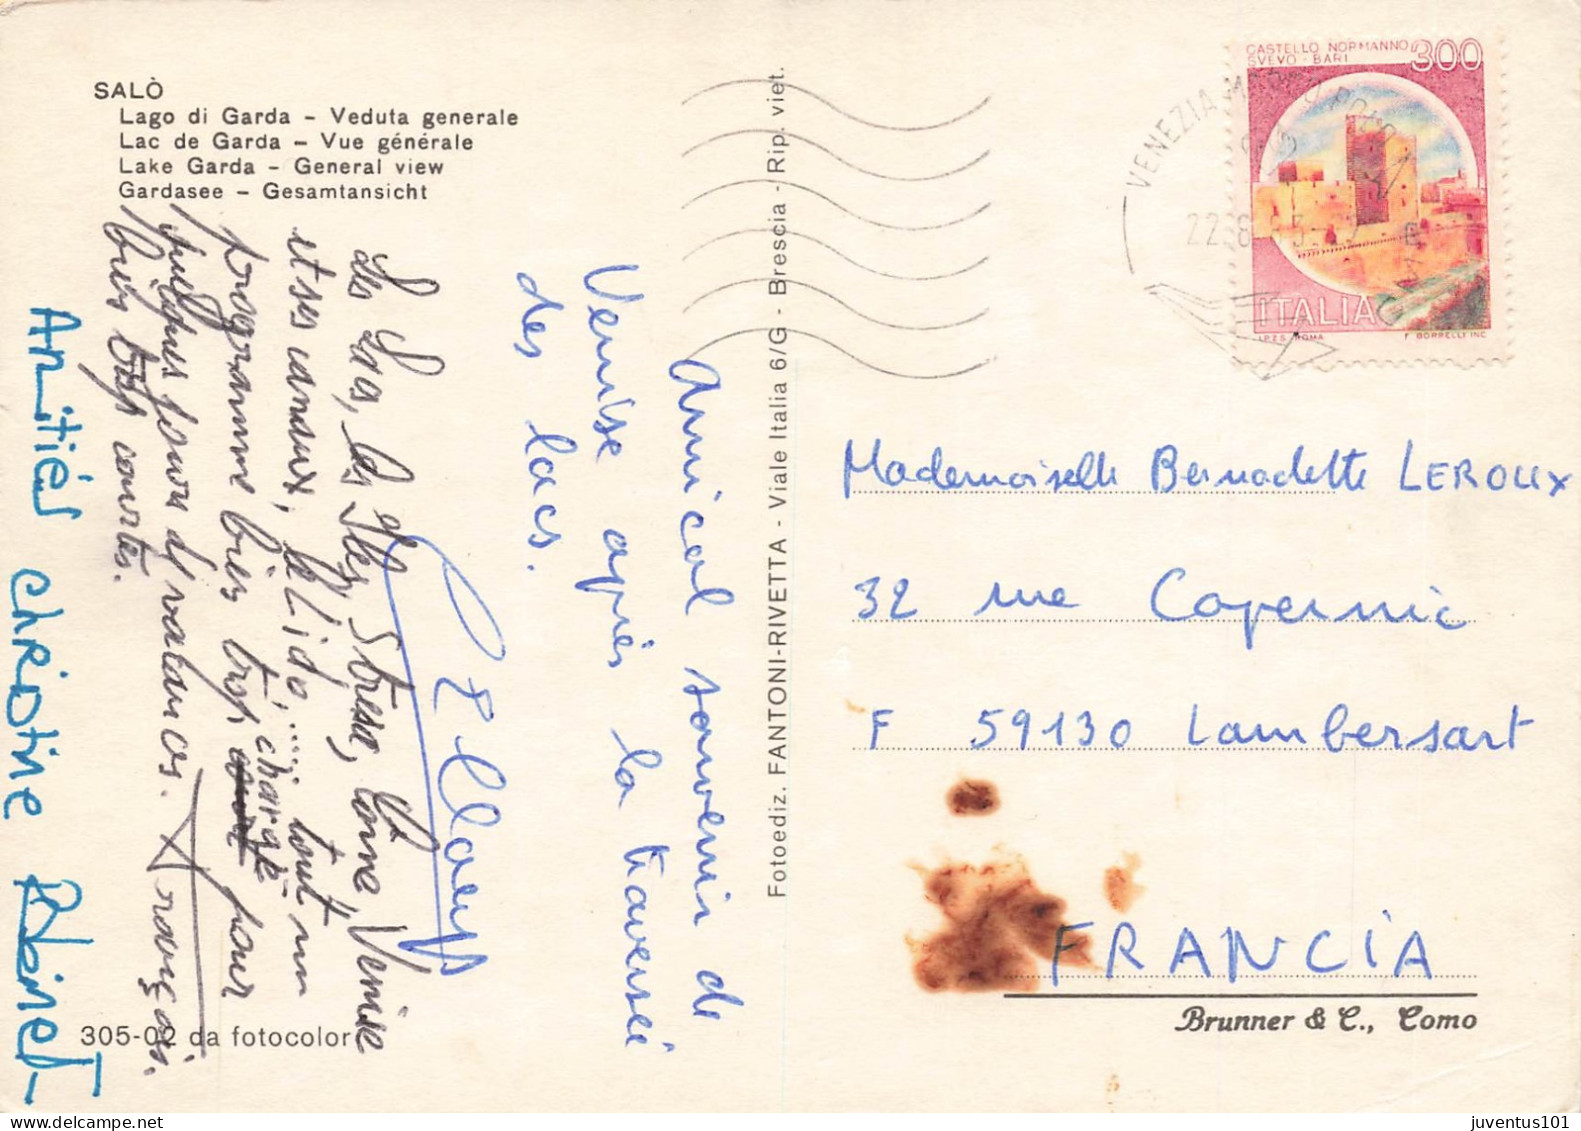 SALÒ
Lago di Garda – Veduta generale
Lac de Garda – Vue générale
Lake Garda – General view
Gardasee – Gesamtansicht
Amical souvenir de
Venise après la traversée
des lacs.
Les Lacs, les Iles, Stresa, Come, Venise
et ses canaux, le Lido, ..... tout un
programme bien trop chargé pour
quelques jours de vacances.
bien trop courtes.
François.
Amitiés christine
305-02 da fotocolor
Fotoediz. FANTONI-RIVETTA - Viale Italia 6/G - Brescia - Rip. viet.
CASTELLO NORMANNO
SVEVO - BARI
300
ITALIA
I.P.Z.S. ROMA
F. BORRELLI INC.
VENEZIA MARCO POLO
22.8
Mademoiselle Bernadette LEROUX
32 rue Copernic
F 59130 Lambersart
FRANCIA
Brunner & C., Como
juventus101